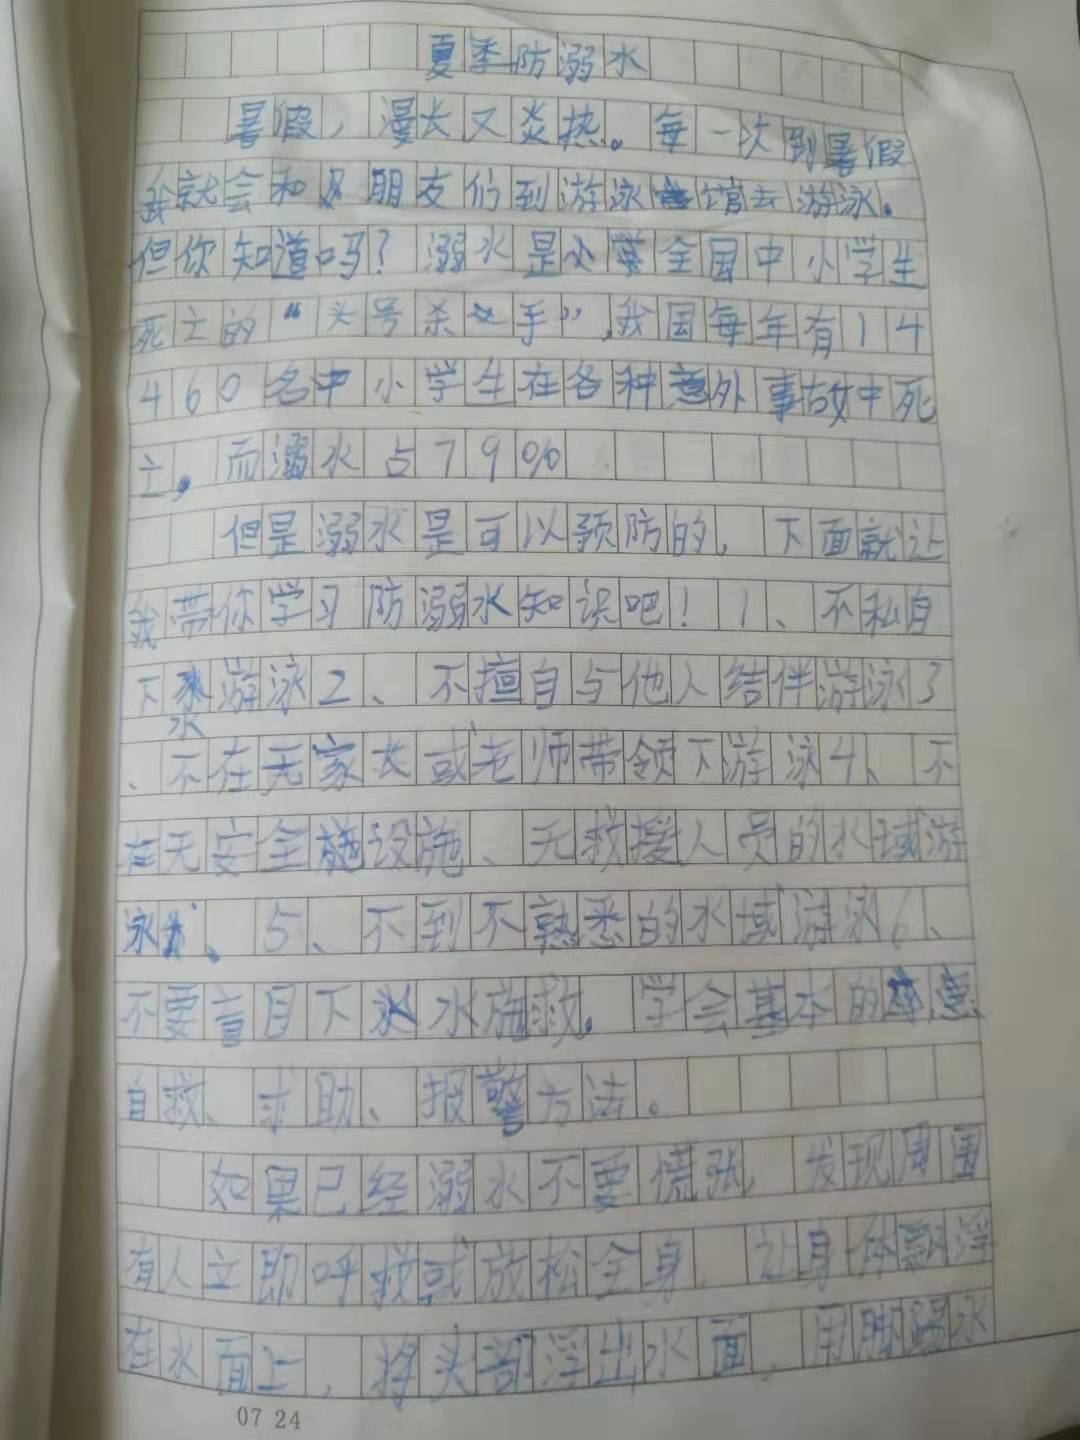 夏季防溺水
暑假，漫长又炎热。每一次到暑假
我就会和朋友们到游泳馆去游泳。
但你知道吗？溺水是全国中小学生
死亡的“头号杀手”,我国每年有14
460名中小学生在各种意外事故中死
亡。而溺水占79%
但是溺水是可以预防的，下面就让
我带你学习防溺水知识吧！1、不私自
下水游泳2、不擅自与他人结伴游泳3
、不在无家长或老师带领下游泳4、不
在无安全设施、无救援人员的水域游
泳、5、不到不熟悉的水域游泳6、
不要盲目下水施救。学会基本的
自救、求助、报警方法。
如果已经溺水不要慌张，发现周围
有人立即呼救或放松全身，让身体飘浮
在水面上，将头部浮出水面，用脚踢水
07 24